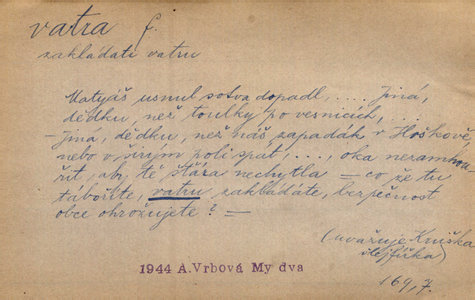 vatra f.
zakládati vatru
Matyáš usnul sotva dopadl, .... Jiná,
dědku, než toulky po vesnicích, ...
– Jiná, dědku, než náš zapadák v Hoškově,
nebo v širým poli spát, ..., oka nezamhou-
řit, aby tě stráza nechytla = co že tu
táboříte, vatru zakládáte, bezpečnost
obce ohrožujete? =
(uvažuje Kniška
1944 A. Vrbová My dva
169,7.